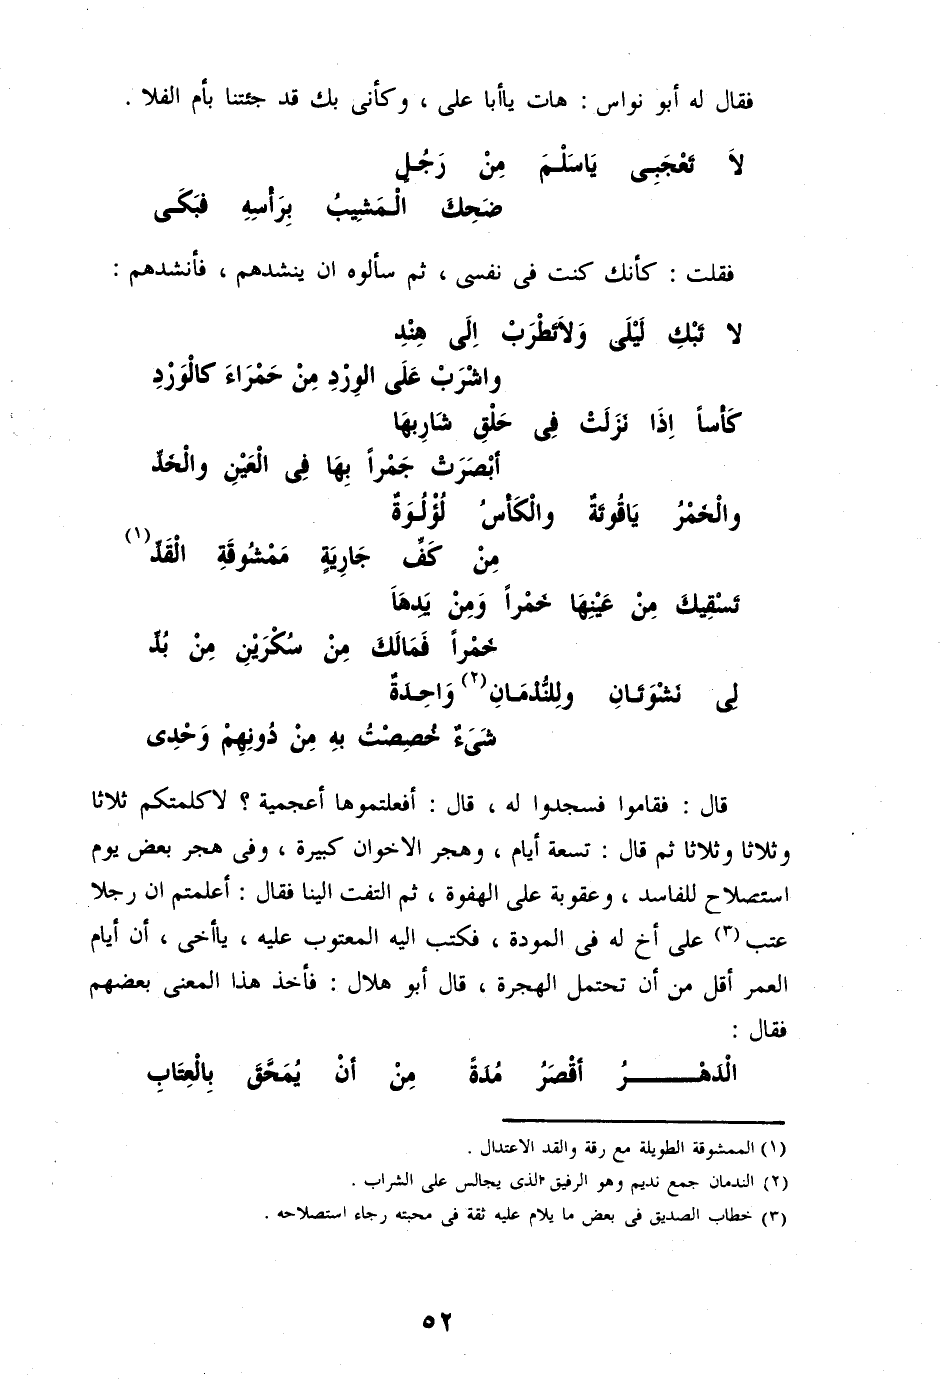 فقال له أبو نواس : هات ياأبا على ، وكأنى بك قد جئتنا بأم الفلا .
لاَ تَعْجَبِـى يَاسَلْـمَ مِنْ رَجُلٍ
ضَحِكَ الْـمَشِيبُ بِرَأْسِهِ فَبَكَـى
فقلت : كأنك كنت فى نفسى ، ثم سألوه ان ينشدهم ، فأنشدهم :
لا تَبْكِ لَيْلَى وَلاَتَطْرَبْ اِلَى هِنْدِ
واشْرَبْ عَلَى الوِرْدِ مِنْ حَمْرَاءَ كالْوَرْدِ
كَأْساً اِذَا نَزَلَتْ فِى حَلْقِ شَارِبِهَا
أبْصَرَتْ جَمْراً بِهَا فِى الْعَيْنِ والْخَدِّ
والْخَمْرُ يَاقُوتَةٌ والْكَأْسُ لُؤْلُـوَةٌ
مِنْ كَفِّ جَارِيَةٍ مَمْشُوقَةِ الْقَدِّ(١)
تَسْقِيكَ مِنْ عَيْنِهَا خَمْراً وَمِنْ يَدِهَا
خَمْراً فَمَالَكَ مِنْ سُكْرَيْنِ مِنْ بُدِّ
لِى نَشْوَتَـانِ ولِلنُّدْمَـانِ(٢) وَاحِـدَةٌ
شَىَءٌ خُصِصْتُ بهِ مِنْ دُونِهِمْ وَحْدِى
قال : فقاموا فسجدوا له ، قال : أفعلتموها أعجمية ؟ لاكلمتكم ثلاثا
وثلاثا وثلاثا ثم قال : تسعة أيام ، وهجر الاخوان كبيرة ، وفى هجر بعض يوم
استصلاح للفاسد ، وعقوبة على الهفوة ، ثم التفت الينا فقال : أعلمتم ان رجلا
عتب(٣) على أخ له فى المودة ، فكتب اليه المعتوب عليه ، ياأخى ، أن أيام
العمر أقل من أن تحتمل الهجرة ، قال أبو هلال : فأخذ هذا المعنى بعضهم
فقال :
الْدَهْـــــــرُ أقْصَرُ مُدَةً مِنْ أنْ يُمَحَّقَ بِالْعِتَابِ
(١) الممشوقة الطويلة مع رقة والقد الاعتدال .
(٢) الندمان جمع نديم وهو الرفيق الذى يجالس على الشراب .
(٣) خطاب الصديق فى بعض ما يلام عليه ثقة فى محبته رجاء استصلاحه .
٥٢